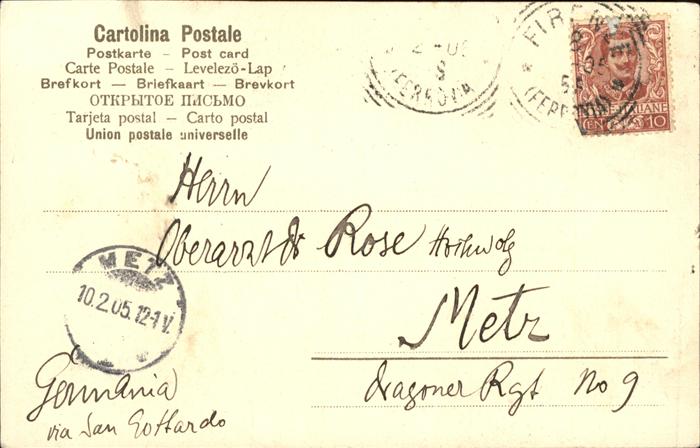 Cartolina Postale
Postkarte – Post card
Carte Postale – Levelező-Lap
Brefkort – Briefkaart – Brevkort
ОТКРЫТОЕ ПИСЬМО
Tarjeta postal – Carto postal
Union postale universelle
2 - 05
8
(FERROVIA)
FIRENZE
8
05
(FERROVIA)
ITALIANE
CENT. 10
Herrn
Oberarzt Dr Rose
Metz
Dragoner Rgt No 9
METZ
10.2.05.12-1V.
Germania
via San Gottardo